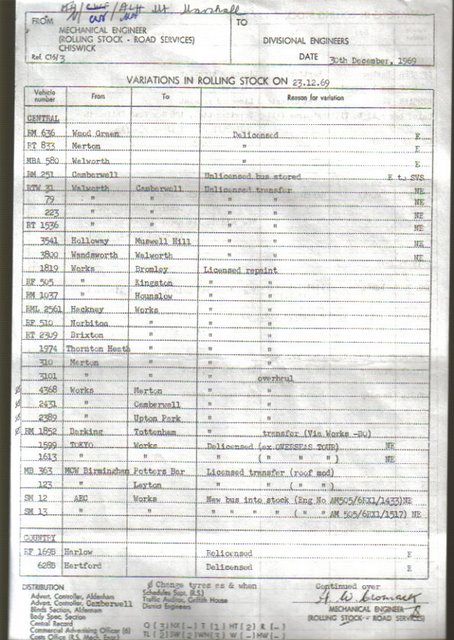 Marshall
FROM MECHANICAL ENGINEER
(ROLLING STOCK - ROAD SERVICES)
CHISWICK
Ref. C16/3
TO
DIVISIONAL ENGINEERS
DATE 30th December, 1969
VARIATIONS IN ROLLING STOCK ON 23.12.69
Vehicle number From To Reason for variation
CENTRAL
RM 636 Wood Green Delicensed E
RT 833 Merton " E
MBA 580 Walworth " E
RM 251 Camberwell Unlicensed bus stored E to SVS
RTW 31 Walworth Camberwell Unlicensed transfer NE
79 " " " " NE
223 " " " " NE
RT 1536 " " " " NE
3541 Holloway Muswell Hill " " NE
3800 Wandsworth Walworth " " NE
1819 Works Bromley Licensed repaint
RF 505 " Kingston " "
RM 1037 " Hounslow " "
RML 2561 Hackney Works " "
RF 510 Norbiton " " "
RT 2309 Brixton " " "
1974 Thornton Heath " " "
310 Merton " " "
3101 " " " overhrul
Ø 4368 Works Merton " "
Ø 2431 " Camberwell " "
Ø 2389 " Upton Park " "
Ø RM 1852 Dorking Tottenham " transfer (Via Works -DO)
1599 TOKYO Works Delicensed (ex OVERSEAS TOUR) NE
1613 " " " ( " " ) NE
MB 363 MCW Birmingham Potters Bar Licensed transfer (roof mod)
123 " Leyton " " ( " " )
SM 12 AEC Works New bus into stock (Eng No AM505/6EX1/1433)NE
SM 13 " " " " " " ( " " AM 505/6EX1/1517) NE
COUNTRY
RF 169B Harlow Relicensed E
628B Hertford Delicensed E
DISTRIBUTION
Advert. Controller, Aldenham
Advpt. Controller, Camberwell
Blinds Section, Aldenham
Body Spec. Section
Central Record
Commercial Advertising Officer (6)
Coms Office (R.S. Mech. Engr)
Ø Change tyres as & when
Schedules Supt. (R.S.)
Traffic Auditor, Griffith House
District Engineers
Continued over
MECHANICAL ENGINEER
(ROLLING STOCK - ROAD SERVICES)